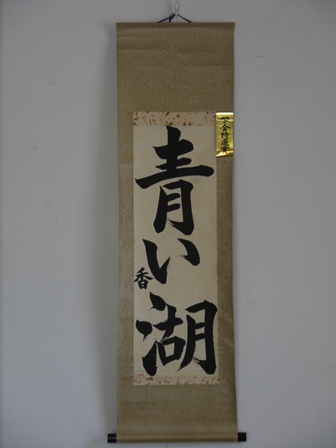 青い湖
香